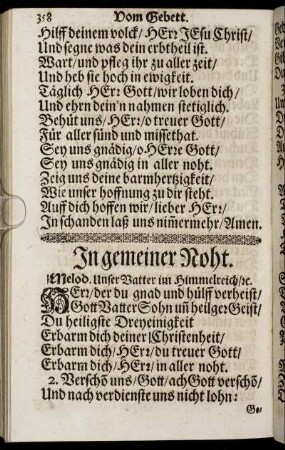 358 Vom Gebett.
Hilff deinem volck/ HErꝛ JEsu Christ/
Und segne was dein erbtheil ist.
Wart/ und pfleg ihr zu aller zeit/
Und heb sie hoch in ewigkeit.
Täglich HErꝛ Gott/ wir loben dich/
Und ehrn dein'n nahmen stetiglich.
Behüt uns/ HErꝛ/ o treuer Gott/
Für aller sünd und missethat.
Sey uns gnädig/ o HErꝛe Gott/
Sey uns gnädig in aller noht.
Zeig uns deine barmhertzigkeit/
Wie unser hoffnung zu dir steht.
Auff dich hoffen wir/ lieber HErꝛ/
In schanden laß uns nim̃ermehr/ Amen.
In gemeiner Noht.
Melod. Unser Vatter im Himmelreich/ ꝛc.
HErꝛ/ der du gnad und hülff verheist/
Gott Vatter Sohn uñ heilger Geist/
Du heiligste Dreyeinigkeit
Erbarm dich deiner Christenheit/
Erbarm dich/ HErꝛ/ du treuer Gott/
Erbarm dich/ HErꝛ/ in aller noht.
2. Verschõ uns/ Gott/ ach Gott verschõ/
Und nach verdienste uns nicht lohn:
Ge-